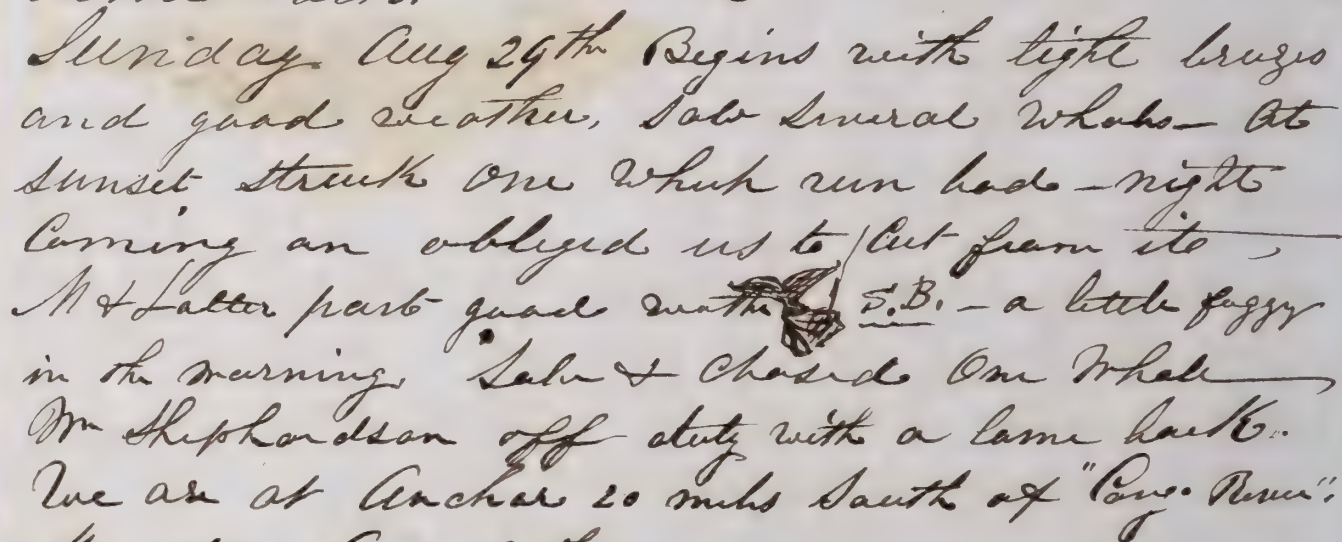 Sunday Aug 29th Begins with light breezes
and good weather, Saw Several Whales – At
sunset struck One Which run bad – night
Coming on obliged us to Cut from it –
M & Latter part good weather S.B. – a little foggy
in the morning. Saw & Chased One Whale
Wm Shephardson off duty with a lame back.
We are at Anchor 20 miles South of "Congo River".